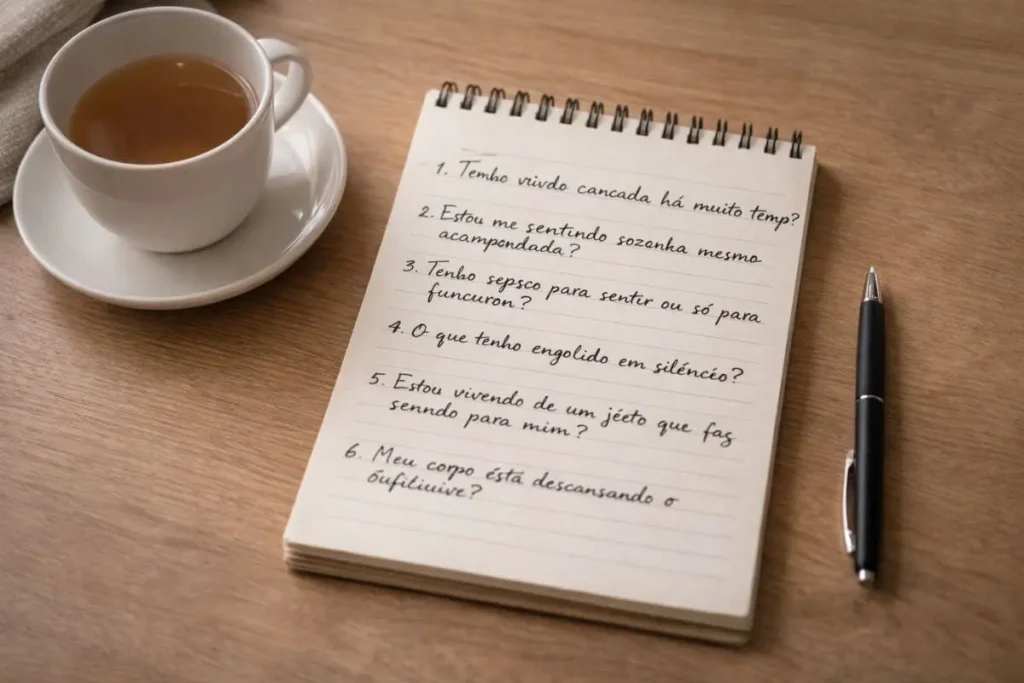 1. Temho vrivdo cancada há muito temp?
2. Estou me sentindo sozonha mesmo
acampondada?
3. Tenho sepsco para sentir ou só para
funcuron?
4. O que tenho engolido em siléncéo?
5. Estou vivendo de um jéeto que fag
senndo para mim?
6. Meu corpo éstá descansando o
óufiliuive?